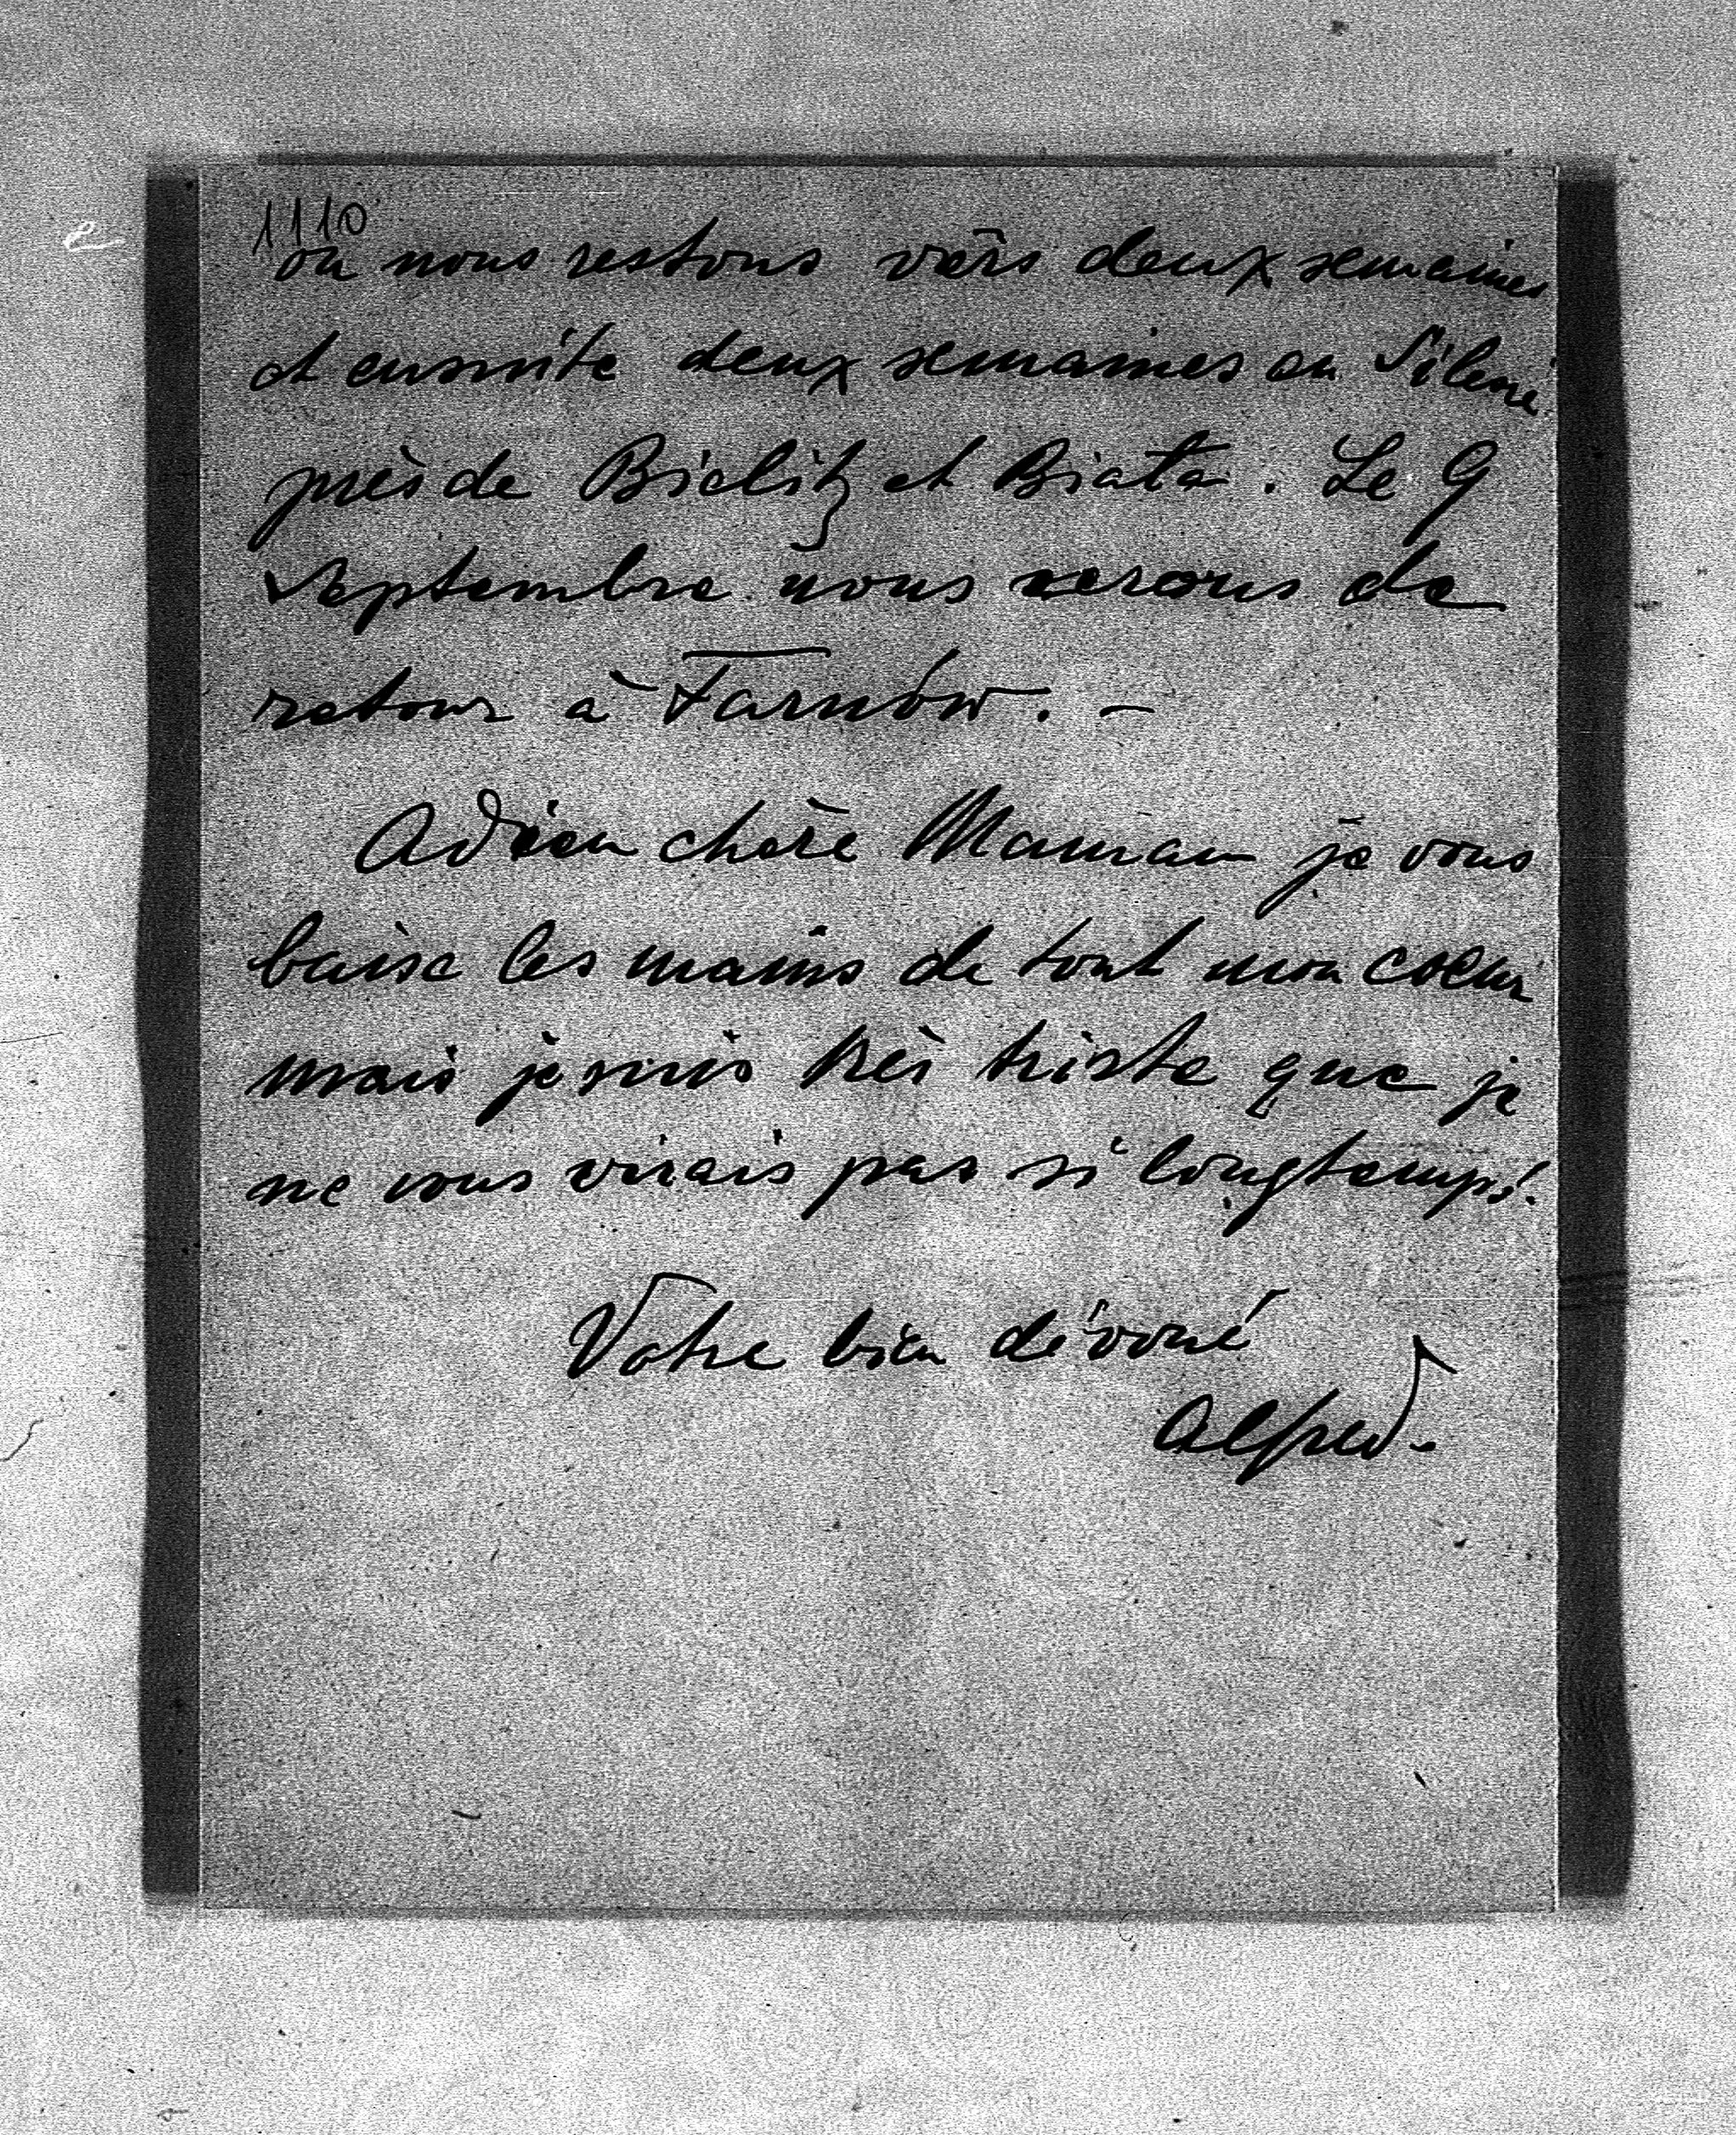 1110
où nous restons vèrs deux semaines
et ensuite deux semaines en Silesie
près de Bielitz et Biała. Le 9
Septembre nous serons de
retour à Tarnów. —
Adieu chère Maman je vous
baise les mains de tout mon coeur
mais je suis très triste que je
ne vous virais pas si longtemps!
Votre bien dévoué
Alfred.